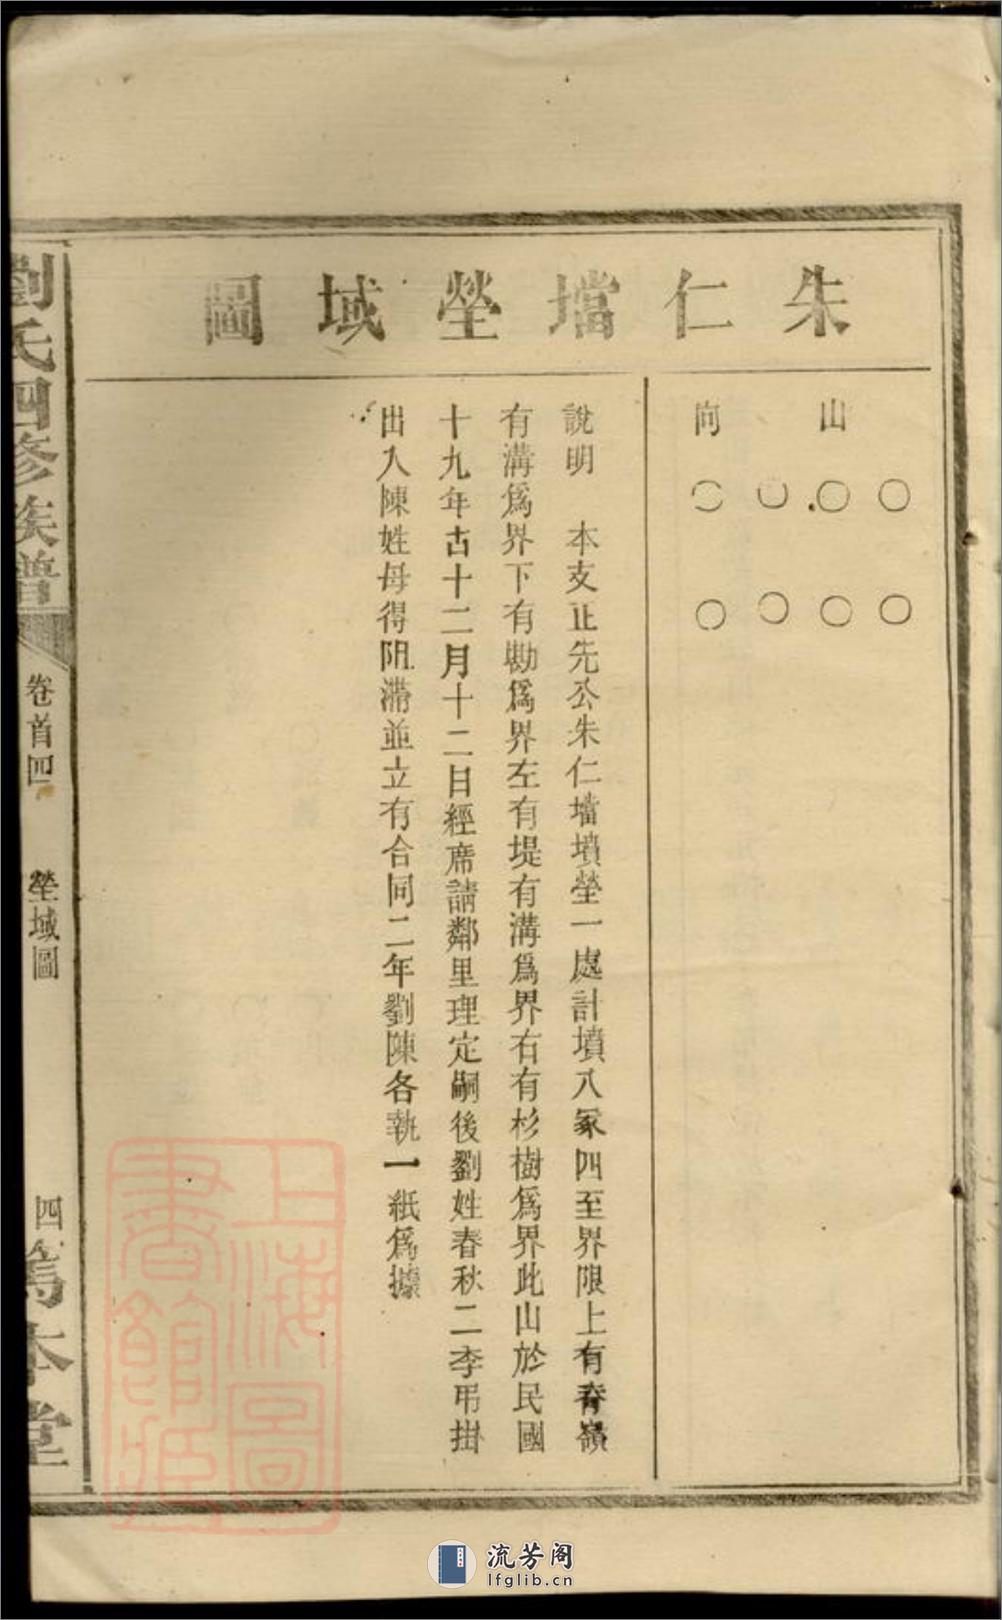 朱仁壋塋域圖
山
向
說明　本支正先公朱仁壋墳塋一處計墳八冢四至界限上有脊嶺
有溝爲界下有勘爲界左有堤有溝爲界右有杉樹爲界此山於民國
十九年古十二月十二日經席請鄰里理定嗣後劉姓春秋二李弔掛
出入陳姓毋得阻滯並立有合同二年劉陳各執一紙爲據
劉氏四修族譜
卷首四
塋域圖
四
篤本堂
上海圖書館藏
流芳阁
lfglib.cn